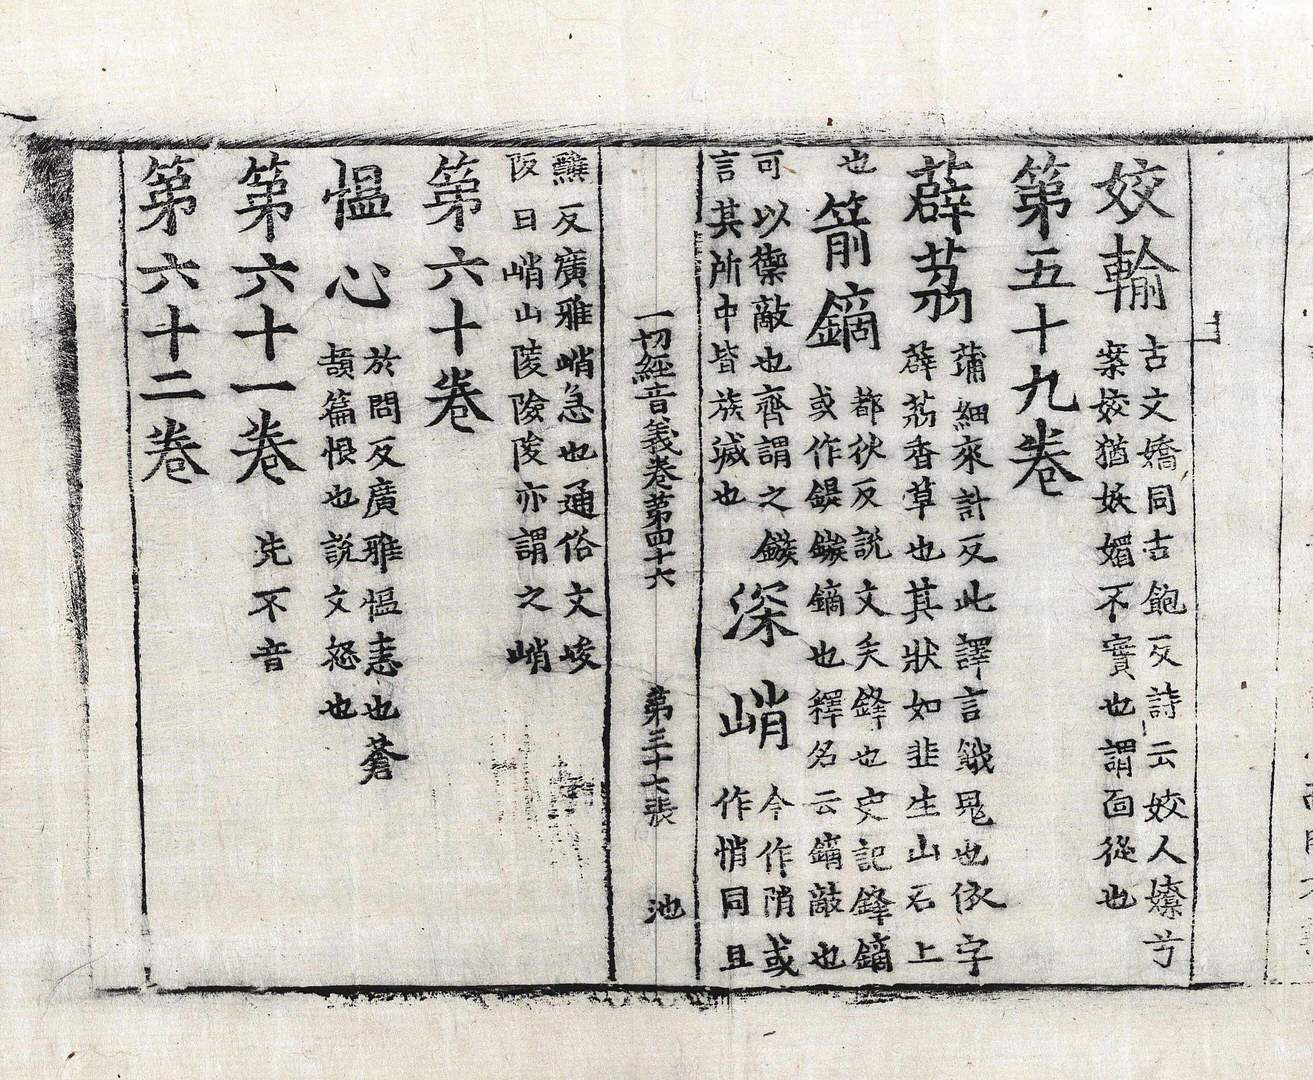 姣輸 古文嬌同古飽反詩云姣人嫽兮
案姣猶妖媚不實也謂面從也
第五十九卷
薜荔 蒲細來計反此譯言餓鬼也依字
薜荔香草也其狀如韭生山石上
也 箭鏑 都狄反說文矢鋒也史記鋒鏑
或作鍉鏃鏑也釋名云鏑敵也
可以禦敵也齊謂之鏃
言其所中皆族滅也
深峭 今作陗或
作悄同且
一切經音義卷第四十六 第三十七張 池
醮反廣雅峭急也通俗文峻
阪曰峭山陵險陵亦謂之峭
第六十卷
慍心 於問反廣雅慍恚也蒼
頡篇恨也說文怒也
第六十一卷 先不音
第六十二卷